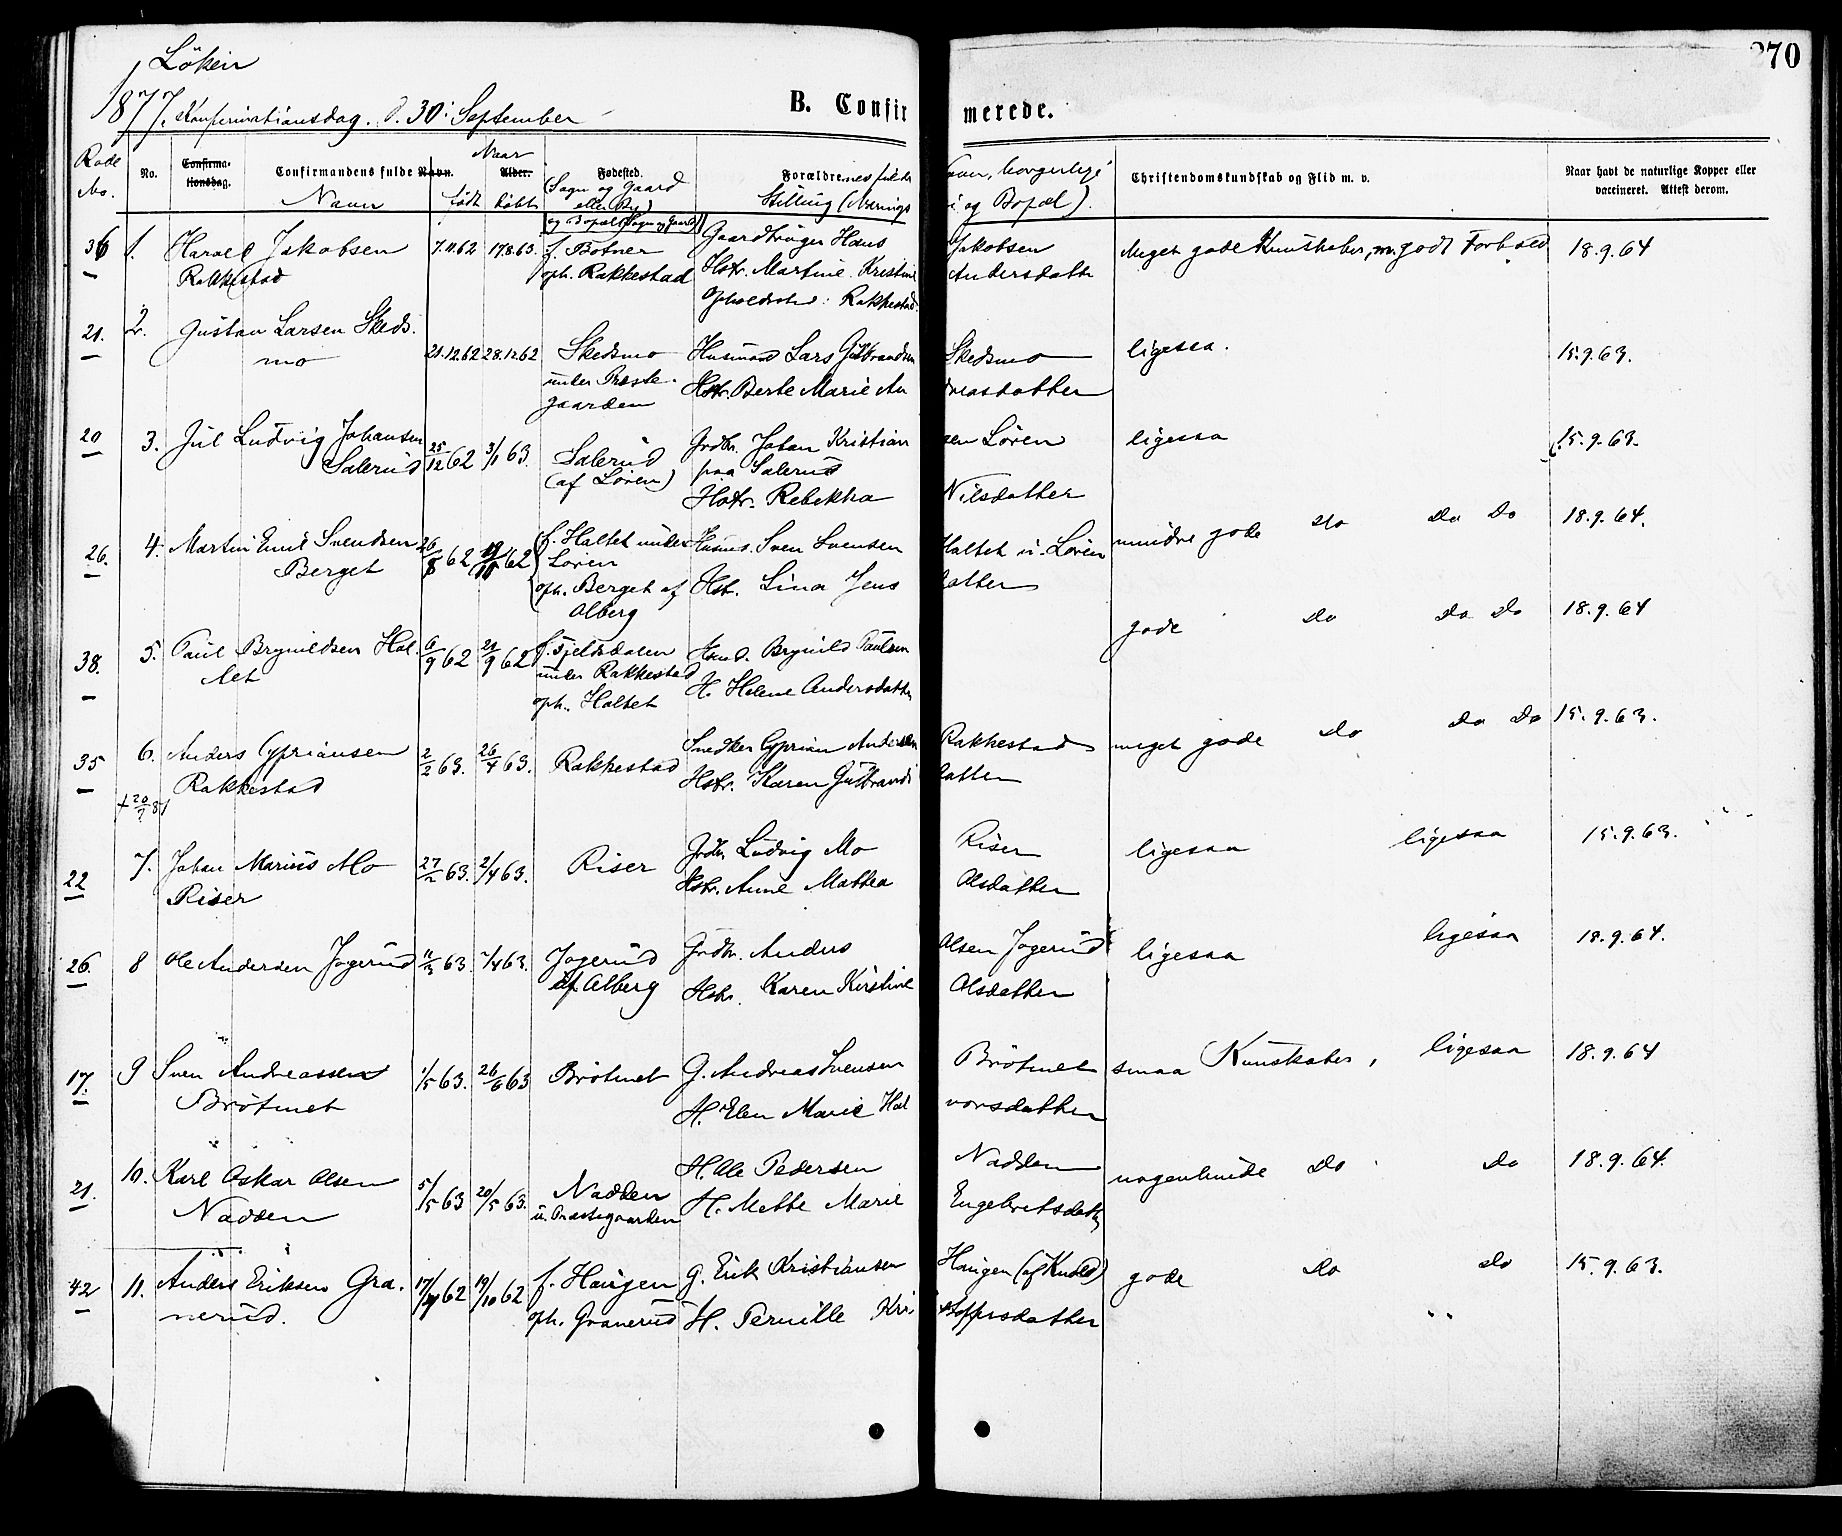 Löken
270
1877. Konfirmationsdag. d. 30: September
B. Confirmerede.
Rode No.
No.
Confirmationsdag.
Confirmandens fulde Navn.
Navn
Naar
Alder.
født
døbt
Fødested.
(Sogn og Gaard eller By)
og Bopæl (Sogn og Gaard)
Forældrenes fulde Navn, borgerlige
Stilling (Nærings og Bopæl).
Christendomskundskab og Flid m. v.
Naar havt de naturlige Kopper eller vaccineret. Attest derom.
36 1. Harald Jakobsen 7.11.62 17.8.63. f. Botner Gaardbruger Hans Jakobsen Meget gode Kundskaber, m. godt Forhold 18.9.64
Rakkestad oph. Rakkestad Hstr. Martine Kristine Andersdatter
Opholdssted: Rakkestad.
21. 2. Gustav Larsen Skeds-
mo 21.12.62 28.12.62 Skedsmo Husmand Lars Gulbrandsen Skedsmo ligesaa. 15.9.63.
under Præste- Hstr. Berte Marie Andreasdatter
gaarden
20 3. Jul Ludvig Johansen 25/12 62 3/1 63. Salerud Grdbr. Johan Kristiansen Lören ligesaa 15.9.63.
Salerud (af Lören) paa Salerud
Hstr. Rebekka Nilsdatter
26. 4. Martin Emil Svendsen 26/8 62 62 f. Haltet under Husm. Sven Svensen Haltet u. Lören mindre gode do do do 18.9.64.
Berget Lören Hst. Lina Jensdatter
oph. Berget af
Alberg
38. 5. Paul Brynildsen Hal- 6/9 62 21/9 62 f. Fjelsdalen Hsmd. Brynild Paulsen gode do do do 18.9.64
tet under Rakkestad H. Helene Andersdatter
oph. Haltet
35 6. Anders Cypriansen 2/2 63. 26/4 63. Rakkestad Snedker Cyprian Andersen Rakkestad meget gode do do do 15.9.63.
Rakkestad Hstr. Karen Gulbrandsdatter
+ 20/7 81
22 7. Johan Marius Mo 27/2 63. 2/4 63. Riser Grdbr. Ludvig Mo Riser ligesaa ligesaa 15.9.63.
Riser Hstr. Anne Mathea Olsdatter
26. 8 Ole Andersen Jogerud 11/3 63. 7/4 63. Jogerud Grdbr. Anders Olsen Jogerud ligesaa ligesaa 18.9.64.
af Alberg Hstr. Karen Kirstine Olsdatter
17. 9 Sven Andreassen 1/5 63. 26/6 63 Brötmet G. Andreas Svensen Brötmet smaa Kundskaber, ligesaa 18.9.64
Brötmet H. Elen Marie Halvorsdatter
21. 10. Karl Oskar Olsen 5/5 63 20/5 63. Nadden H. Ole Pedersen Nadden nogenlunde do do 18.9.64.
Nadden u. Præstegaarden H. Mette Marie Engebretsdatter
42 11. Anders Eriksen Gra- 17/9 62 19/10 62 f. Haugen G. Erik Kristiansen Haugen (af Kuld) gode do do 15.9.63.
nerud. oph. Granerud H. Pernille Kristoffersdatter